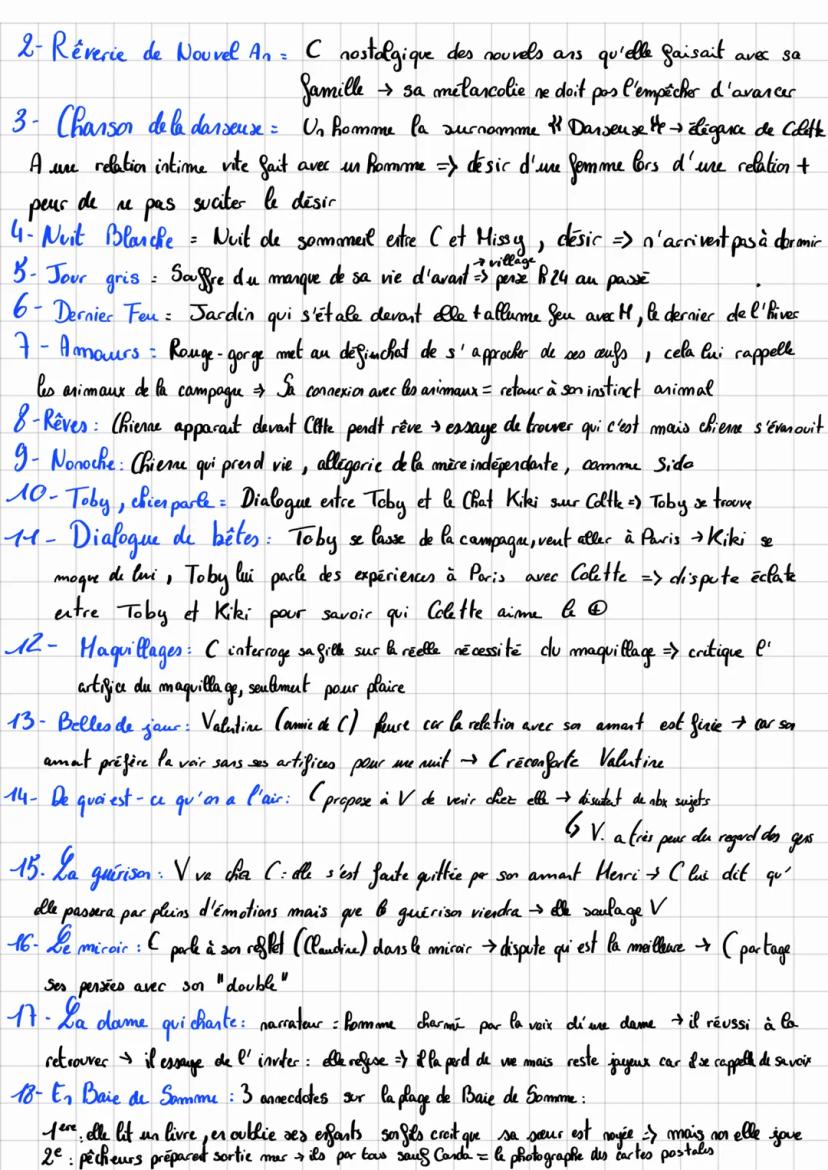 2- Rêverie de Nouvel An = C nostalgique des nouvels ans qu'elle faisait avec sa
famille → sa mélancolie ne doit pas l'empêcher d'avancer
3- Chanson de la danseuse = Un homme la surnomme "Danseuse" → élégance de Colette
A une relation intime vite fait avec un homme => désir d'une femme lors d'une relation +
peur de ne pas suciter le désir
4- Nuit Blanche = Nuit de sommeil entre C et Missy, désir => n'arrivent pas à dormir
→ village
5- Jour gris : Souffre du manque de sa vie d'avant => pense h24 au passé
6- Dernier Feu = Jardin qui s'étale devant elle + allume feu avec M, le dernier de l'hiver
7- Amours = Rouge-gorge met au défi chat de s'approcher de ses œufs, cela lui rappelle
les animaux de la campagne => Sa connexion avec les animaux = retour à son instinct animal
8- Rêves : Chienne apparait devant Clte pendt rêve → essaye de trouver qui c'est mais chienne s'évanouit
9- Nonoche : Chienne qui prend vie, allégorie de la mère indépendante, comme Sido
10- Toby, chien parle = Dialogue entre Toby et le Chat Kiki sur Coltte => Toby se trouve
11- Dialogue de bêtes : Toby se lasse de la campagne, veut aller à Paris → Kiki se
moque de lui, Toby lui parle des expériences à Paris avec Colette => dispute éclate
entre Toby et Kiki pour savoir qui Colette aime le ⊕
12- Maquillages : C interroge sa fille sur la réelle nécessité du maquillage => critique l'
artifice du maquillage, seulement pour plaire
13- Belles de jour : Valentine (amie de C) pleure car la relation avec son amant est finie → car son
amant préfère la voir sans ses artifices pour une nuit → C réconforte Valentine
14- De quoi est-ce qu'on a l'air : C propose à V de venir chez elle → discutent de nbx sujets
↳ V. a très peur du regard des gens
15. La guérison : V va chez C : elle s'est faite quittée par son amant Henri → C lui dit qu'
elle passera par pleins d'émotions mais que la guérison viendra → elle soulage V
16- Le miroir : C parle à son reflet (Claudine) dans le miroir → dispute qui est la meilleure → C partage
ses pensées avec son "double"
17- La dame qui chante : narrateur = homme charmé par la voix d'une dame → il réussi à la
retrouver → il essaye de l'inviter : elle refuse => il la perd de vue mais reste joyeux car il se rappelle de sa voix
18- En Baie de Somme : 3 anecdotes sur la plage de Baie de Somme :
1ère : elle lit un livre, en oublie ses enfants son fils croit que sa sœur est noyée => mais non elle joue
2e : pêcheurs préparent sortie mer → ils par tous sauf = le photographe des cartes postales